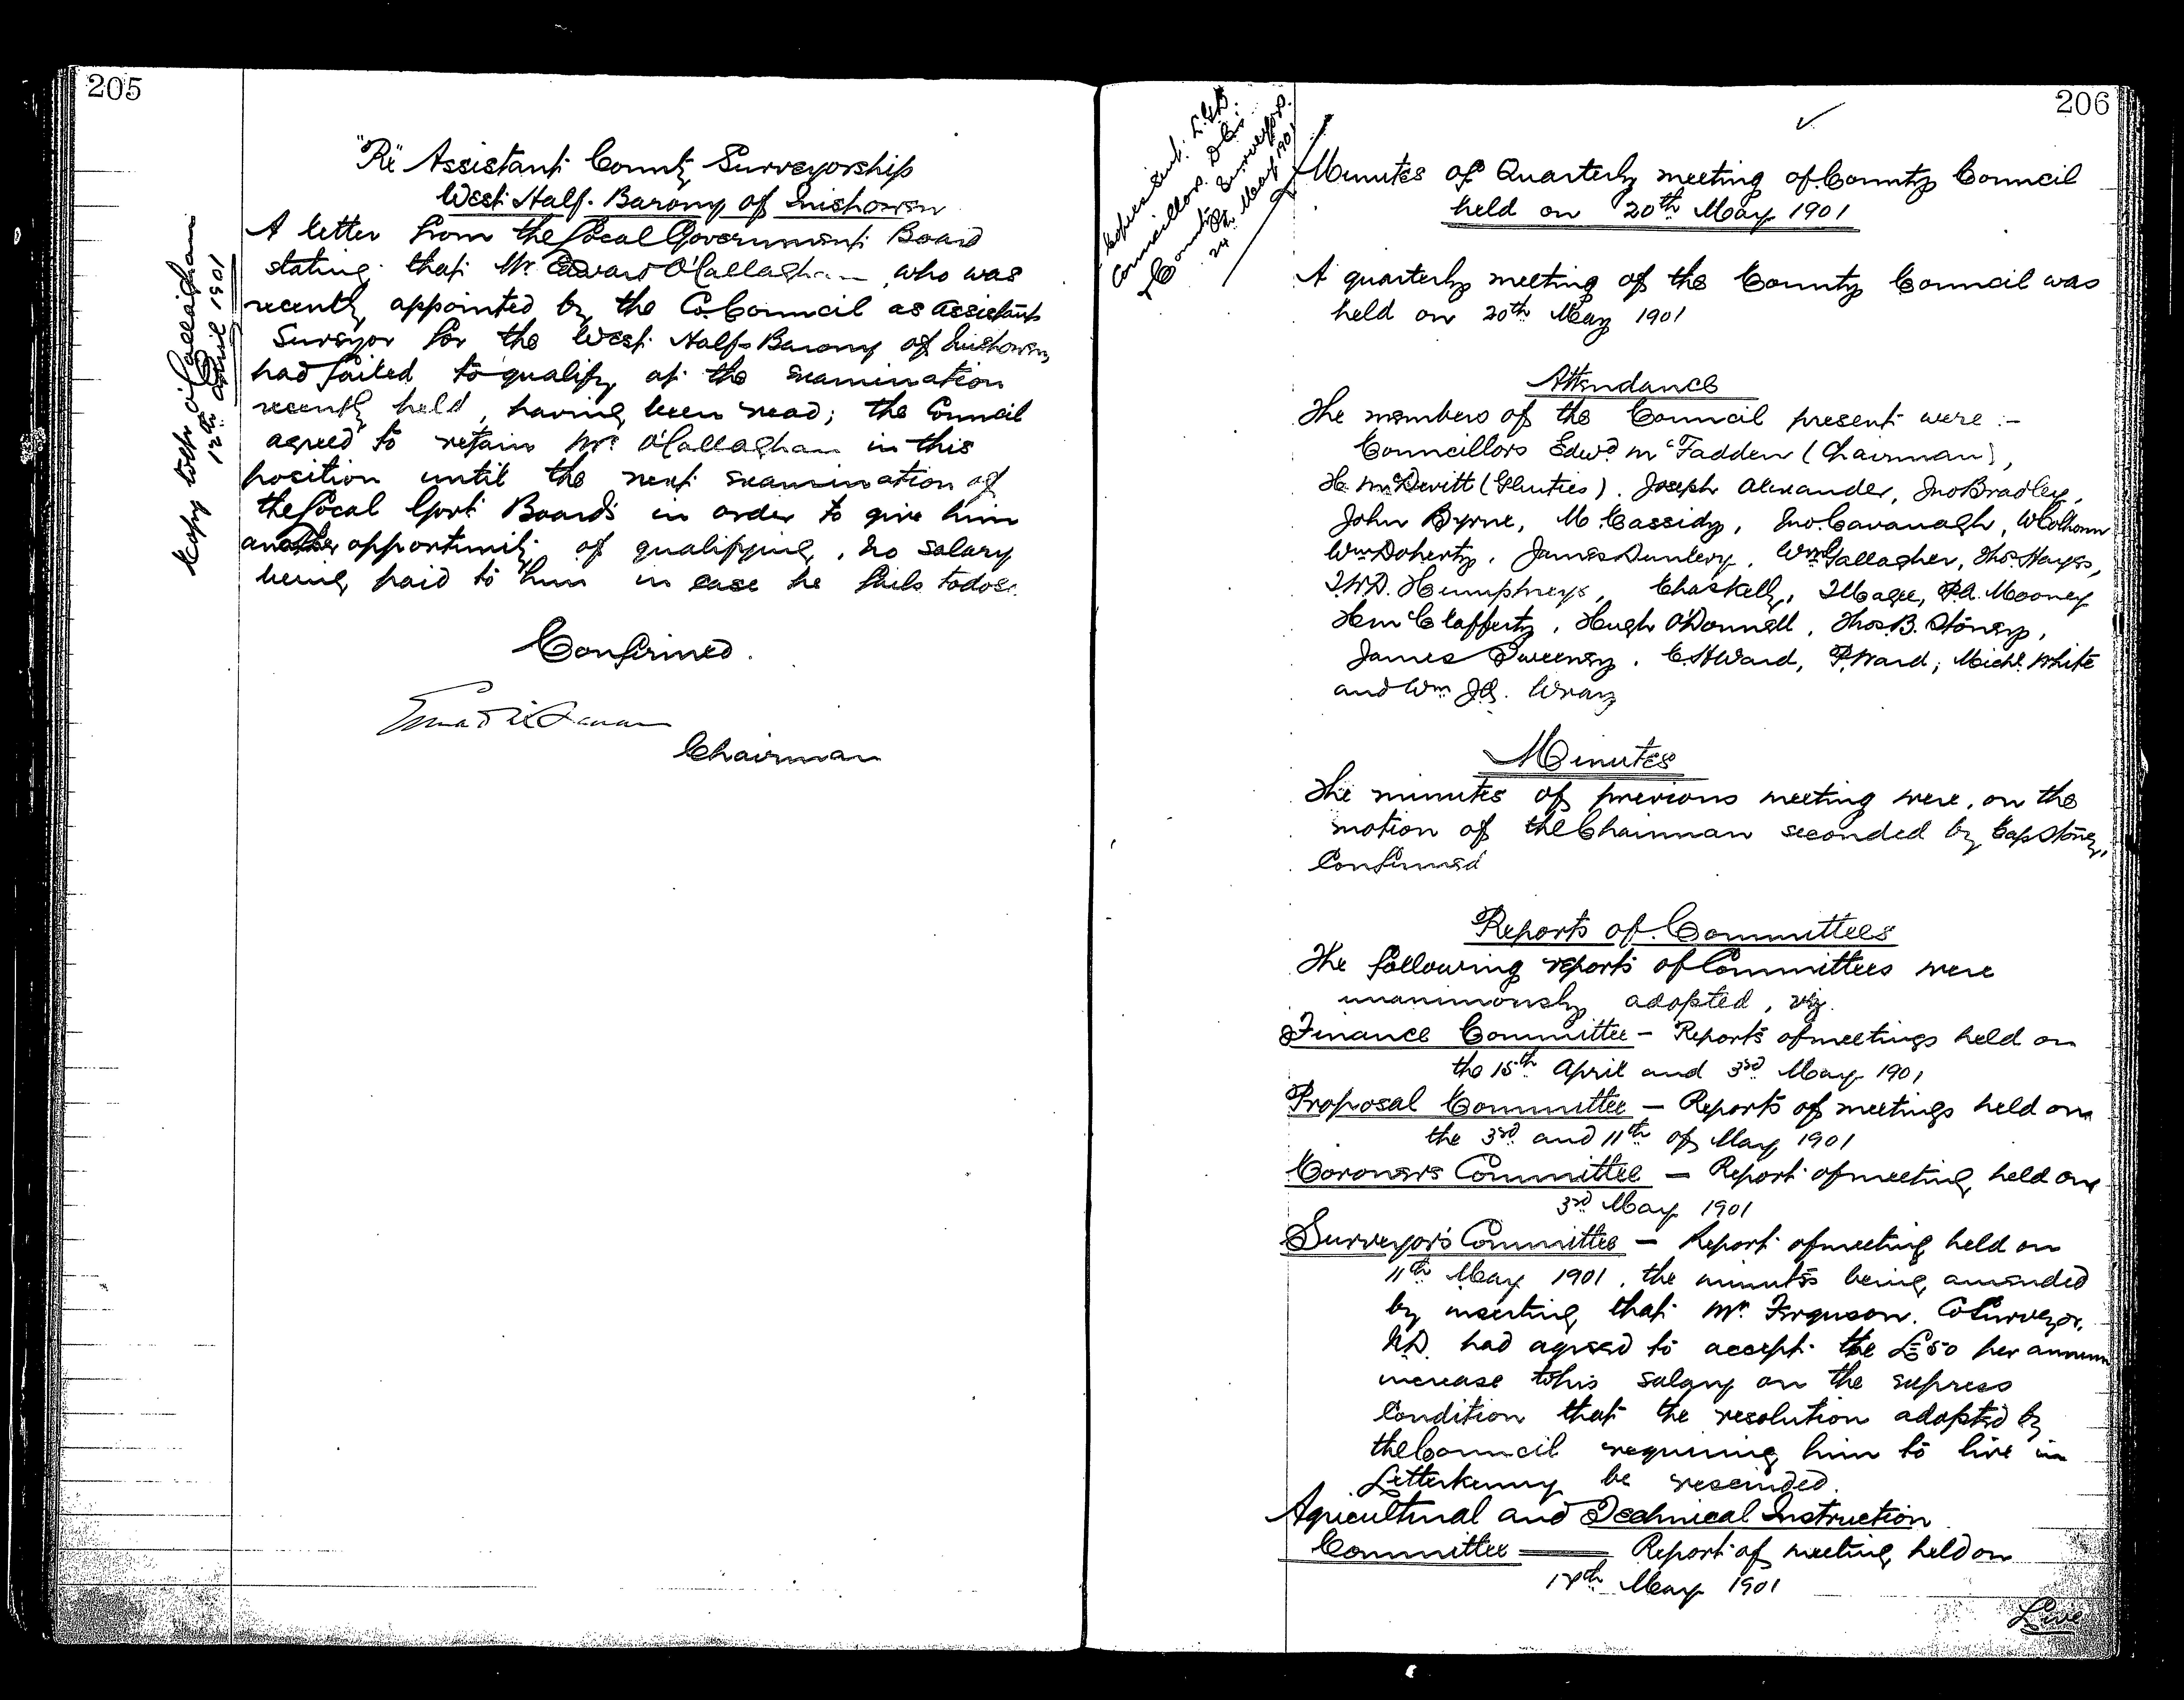 205
"Re" Assistant County Surveyorship
West Half-Barony of Inishowen
Copy to Mr O'Callaghan
12th April 1901
A letter from the Local Government Board
stating that Mr Edward O'Callaghan, who was
recently appointed by the Co. Council as assistant
Surveyor for the West Half-Barony of Inishowen
had failed to qualify at the examination
recently held, having been read; the Council
agreed to retain Mr O'Callaghan in this
position until the next examination of
the Local Govt Board's in order to give him
another opportunity of qualifying, no salary
being paid to him in case he fails to do so.
Confirmed.
Chairman
206
Copies sent: L.G.B.
Councillors. D.Cs.
& County Surveyors.
24 May 1901
Minutes of Quarterly meeting of County Council
held on 20th May 1901
A quarterly meeting of the County Council was
held on 20th May 1901
Attendance
The members of the Council present were :-
Councillors Edwd McFadden (Chairman),
H. McDevitt (Glenties). Joseph Alexander, Jno Bradley,
John Byrne, M. Cassidy, Jno. Cavanagh, W Colhoun
Wm Doherty, James Dunlevy, Wm Gallagher, Thos. Hayes,
T.W.D. Humphreys, Chas Kelly, J Magee, P.A. Mooney
H McClafferty, Hugh O'Donnell, Thos. B. Stoney,
James Sweeney, C.H Ward, P. Ward, Michl. White
and Wm J.G. Wray
Minutes
The minutes of previous meeting were, on the
motion of the Chairman seconded by Cap Stoney,
Confirmed
Reports of Committees
The following reports of Committees were
unanimously adopted, viz.
Finance Committee - Reports of meetings held on
the 15th April and 3rd May 1901
Proposal Committee - Reports of meetings held on
the 3rd and 11th of May 1901
Coroners Committee - Report of meeting held on
3rd May 1901
Surveyor's Committee - Report of meeting held on
11th May 1901, the minutes being amended
by inserting that Mr. Ferguson. Co Surveyor.
N.D. had agreed to accept the £50 per annum
increase to his salary on the express
Condition that the resolution adopted by
the Council requiring him to live in
Letterkenny be rescinded.
Agricultural and Technical Instruction
Committee — Report of meeting held on
May 1901
Live